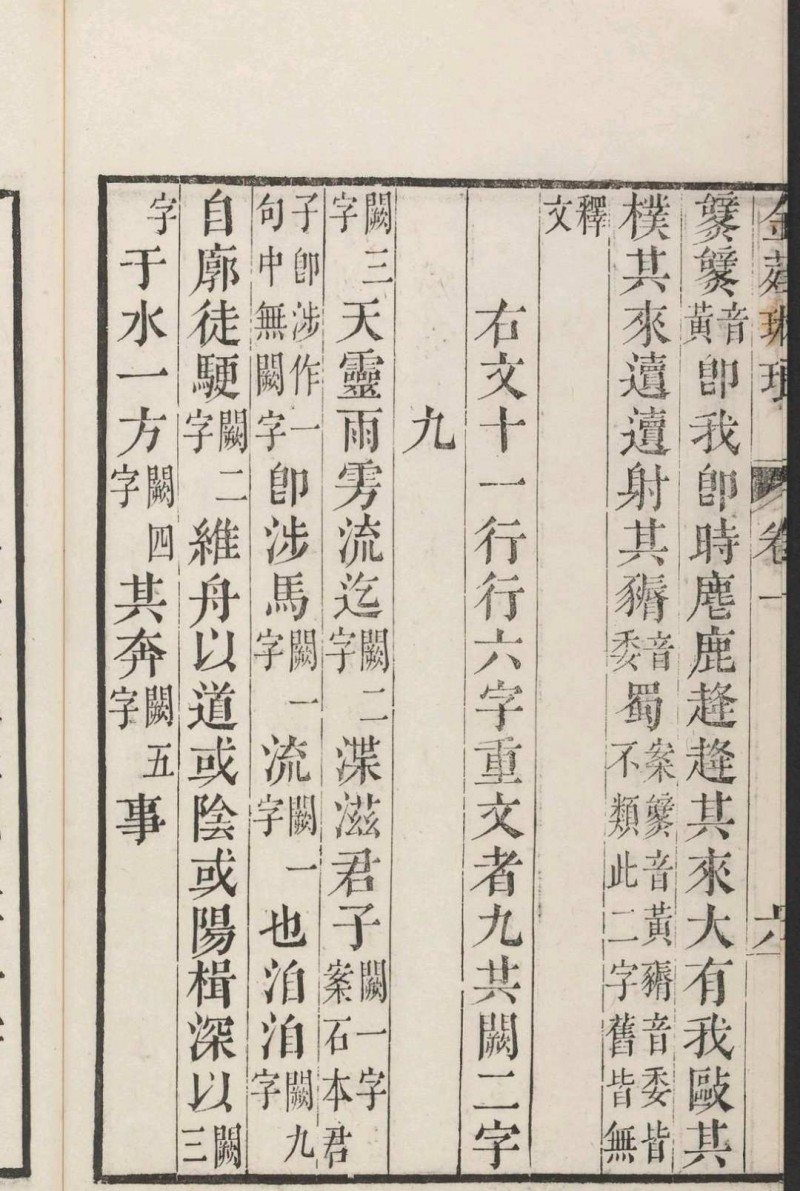 金薤琳琅 卷一 六
音黃即我即時麀鹿其來大有我敺其
樸其來䢱䢱射其音委蜀案音黃音委皆不類此二字舊皆無
釋文
右文十一行行六字重文者九共闕二字
九
闕三字天靈雨雱流迄闕二字渫滋君子闕一字案石本君
子即涉作一句中無闕字即涉馬闕一字流闕一字也洎洎闕九字
自廓徒駛闕二字維舟以道或陰或陽楫深以闕三
字于水一方闕四字其奔闕五字事